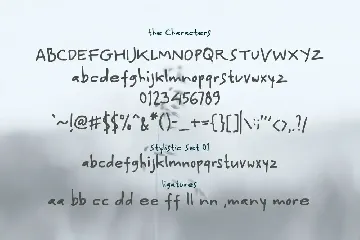 the Characters
ABCDEFGHIJKLMNOPQRSTUVWXYZ
abcdefghijklmnopqrstuvwxyz
0123456789
`~!@#$$%^&*()-_+={}[]|\:;"'<>,.?/
Stylistic Set 01
abcdefghijklmnopqrstuvwxyz
ligatures
aa bb cc dd ee ff ll nn ,many more